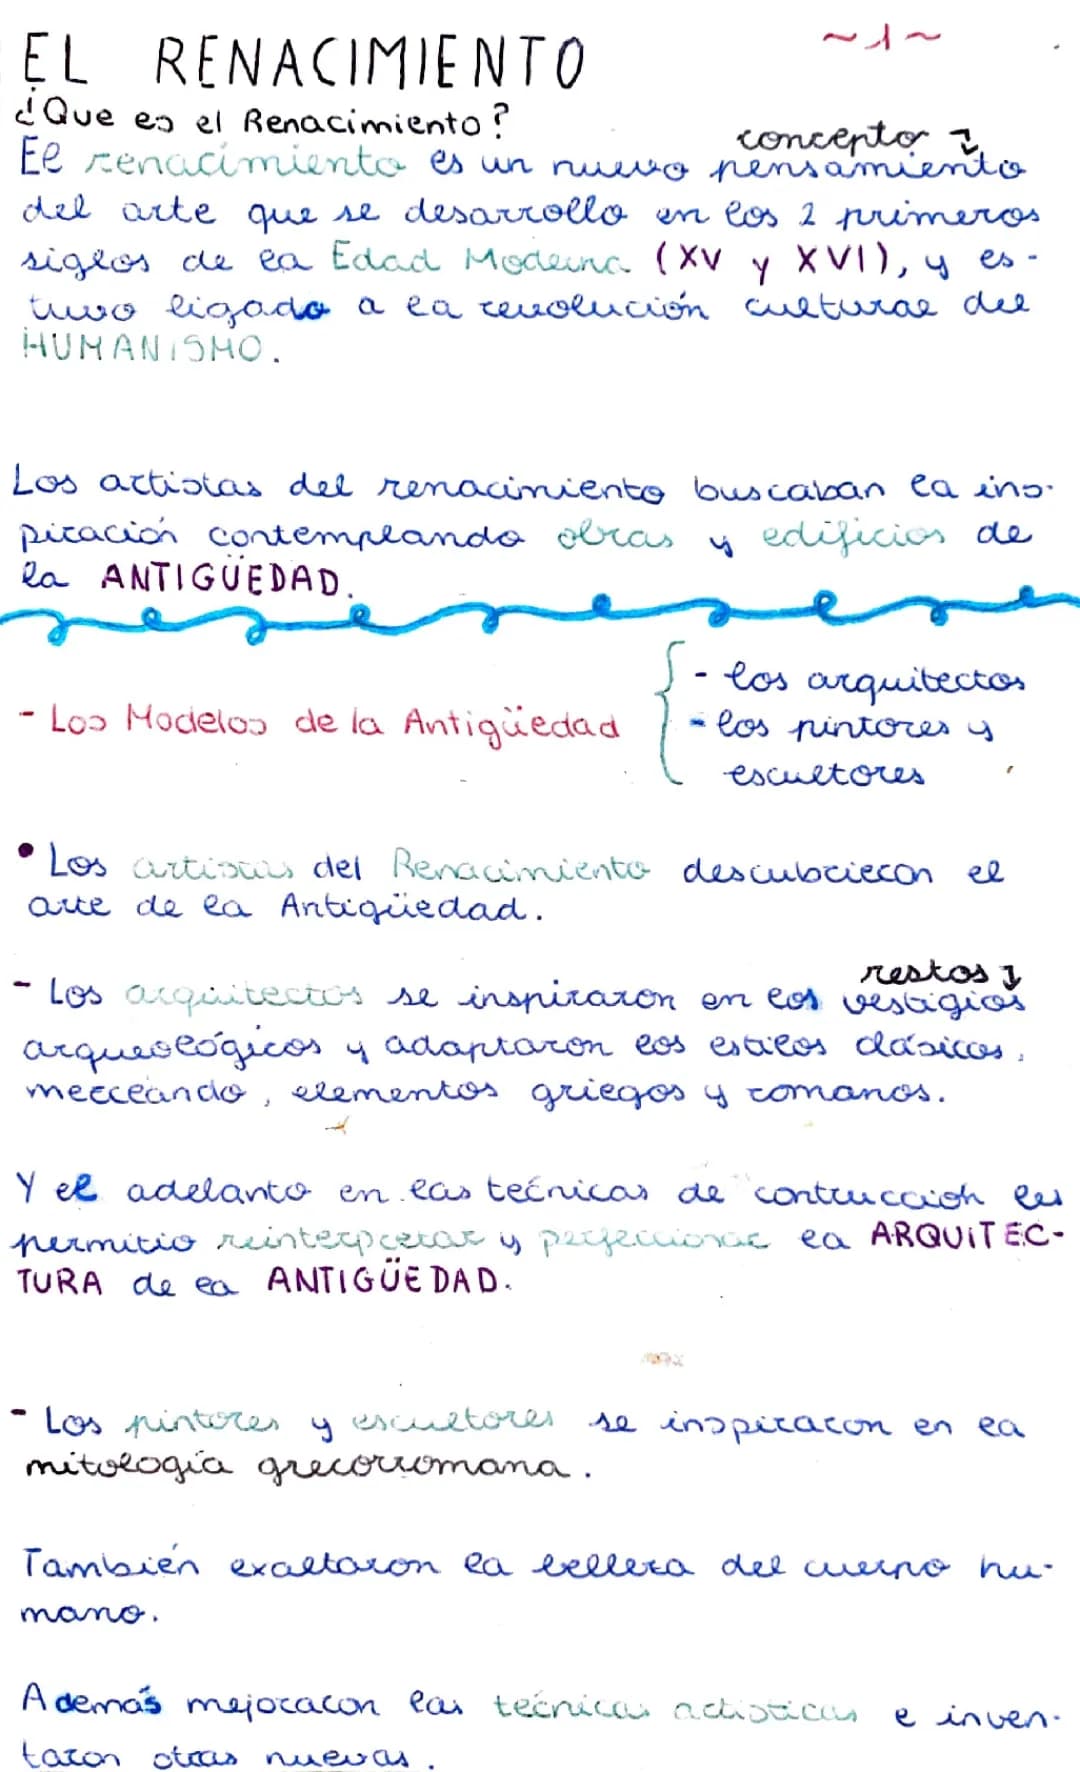 ~1~
EL RENACIMIENTO
¿Que es el Renacimiento?
concepto
El renacimiento es un nuevo pensamiento
del arte que se desarrollo en los 2 primeros
siglos de la Edad Moderna (XV y XVI), y es-
tuvo ligado a la revolución cultural del
HUMANISMO.
Los artistas del renacimiento buscaban la ins-
piración contemplando obras y edificios de
la ANTIGÜEDAD.
- Los Modelos de la Antigüedad
- los arquitectos
- los pintores y
escultores
• Los artistas del Renacimiento descubrieron el
arte de la Antigüedad.
restos
- Los arquitectos se inspiraron en los vestigios
arqueológicos y adaptaron los estilos clásicos,
mezcleando, elementos griegos y romanos.
Y el adelanto en las técnicas de contrucción les
permitio reinterpretar y perfeccionar la ARQUITEC-
TURA de la ANTIGÜEDAD.
- Los pintores y escultores se inspiraron en la
mitología grecorromana.
También exaltaron la belleza del cuerpo hu-
mano.
Además mejoraron las técnicas artísticas e inven-
taron otras nuevas.